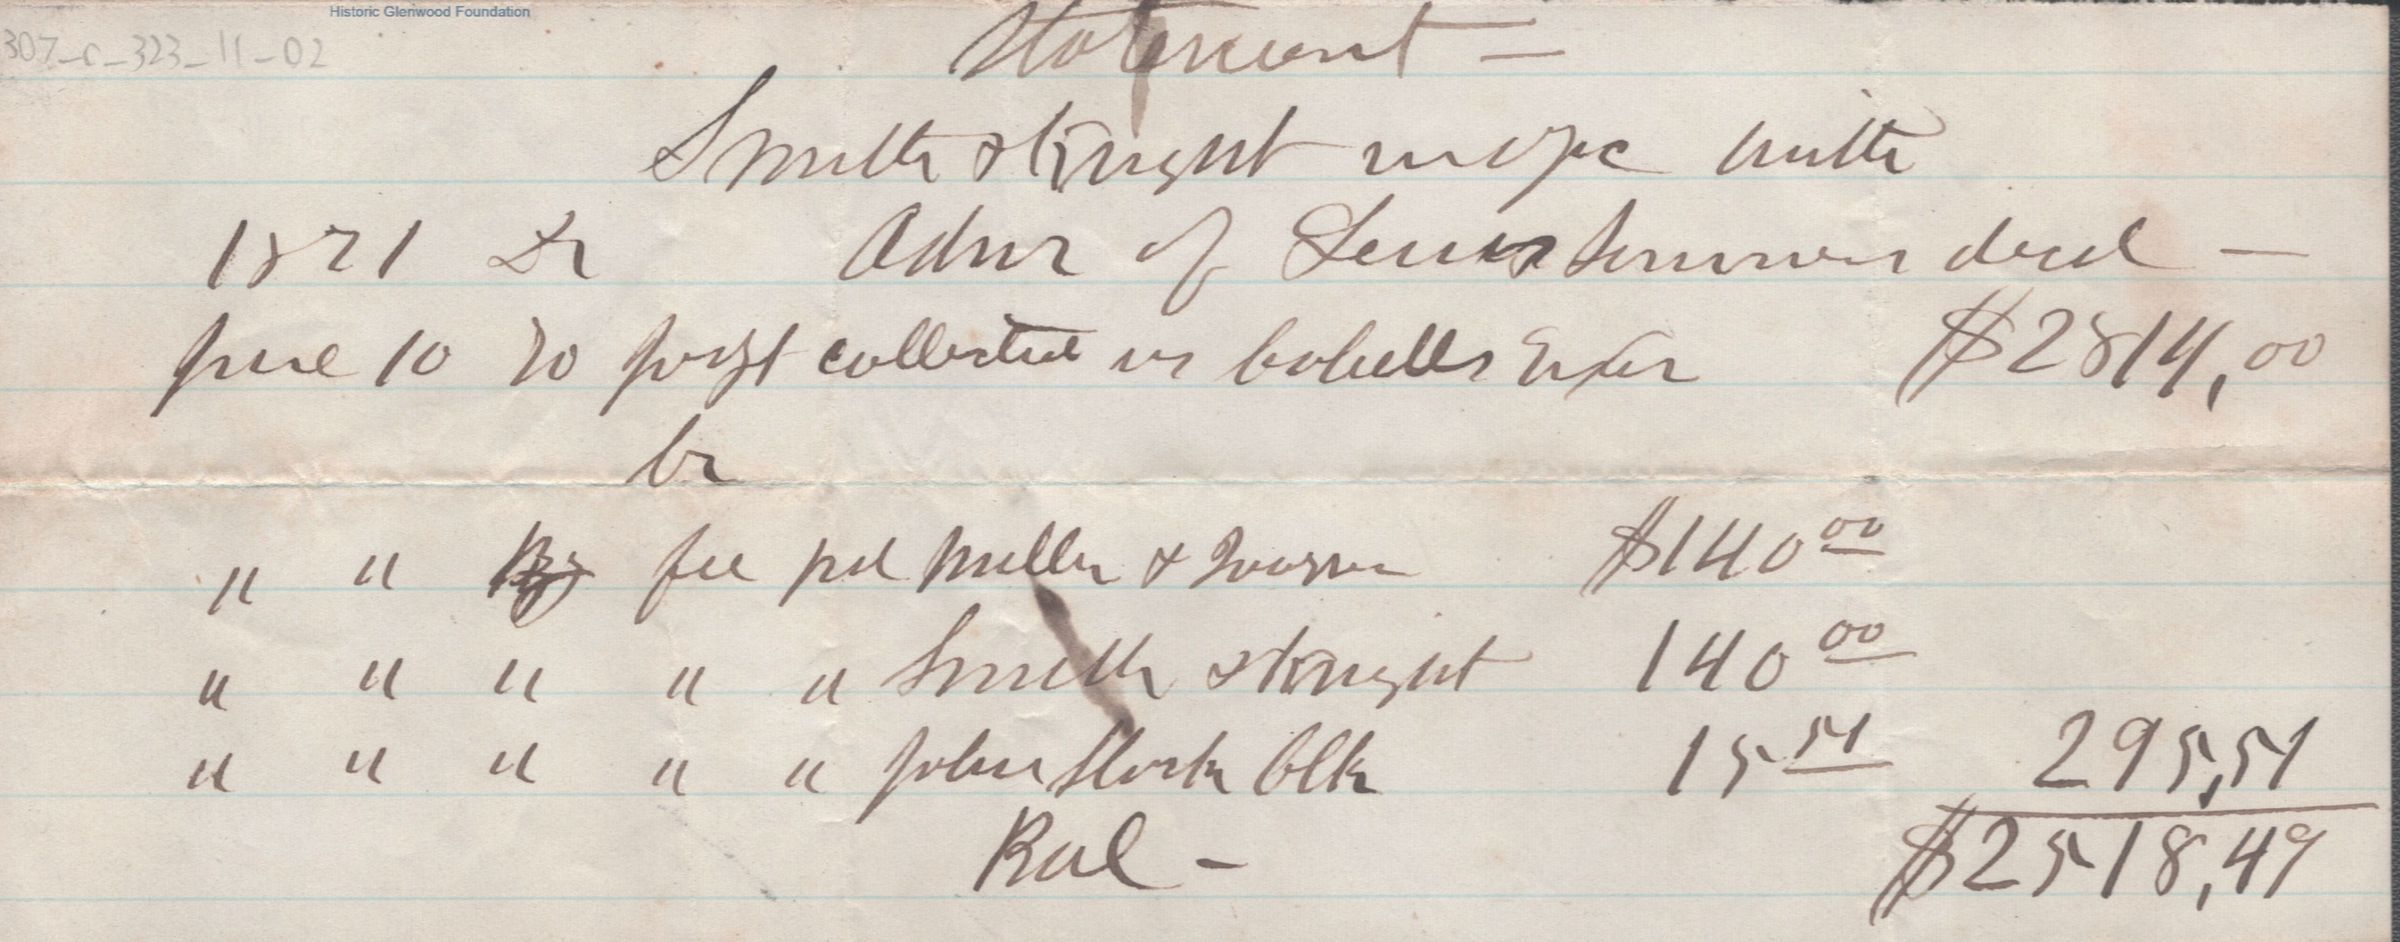 Historic Glenwood Foundation
307_c_323_11-02
Statement —
Smith & Knight in a/c with
1871 Dr Admr of Lewis decd —
June 10 To Judgt collected vs Exter $2814,00
Cr
" " By fee pd Miller & $140 00
" " " " " Smith & Knight 140 00
" " " " " John Clk 15 51 295,51
Bal – $2518,49